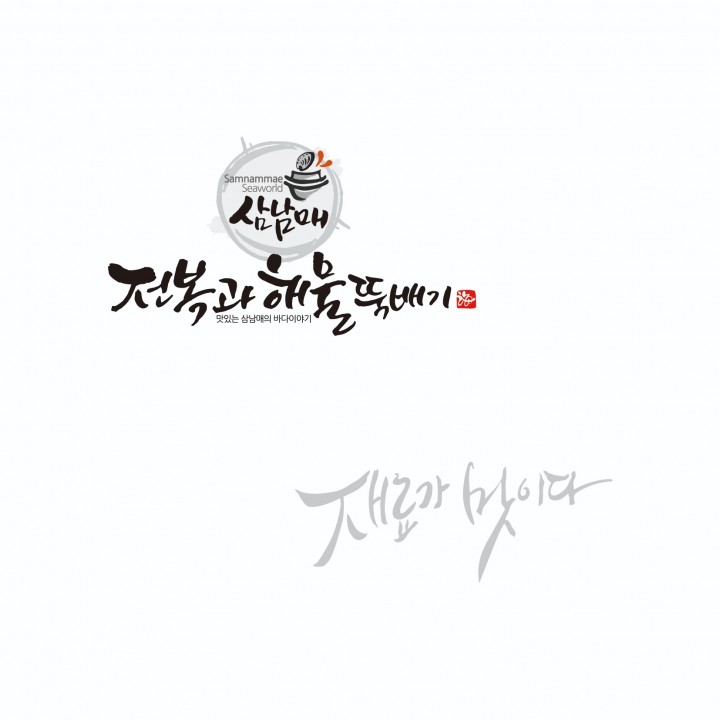 Samnammae
Seaworld
삼남매
전복과 해물 뚝배기
맛있는 삼남매의 바다이야기
재료가 맛이다